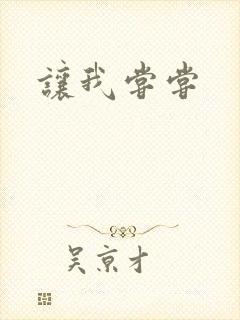 讓我嘗嘗
吳京才